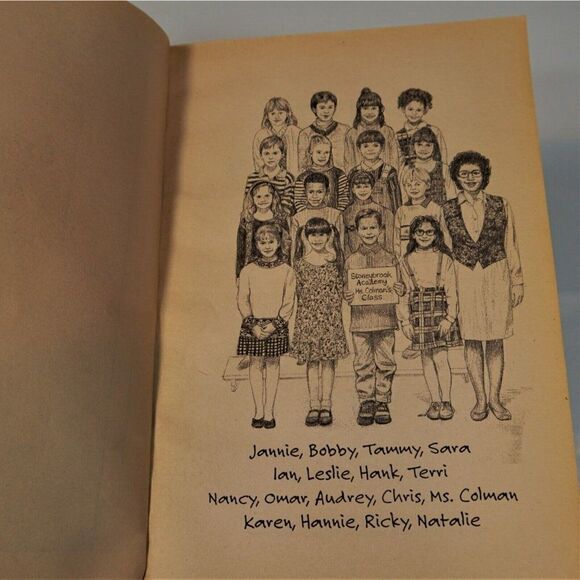 Stoneybrook
Academy
Ms. Colman's
Class
Jannie, Bobby, Tammy, Sara
Ian, Leslie, Hank, Terri
Nancy, Omar, Audrey, Chris, Ms. Colman
Karen, Hannie, Ricky, Natalie